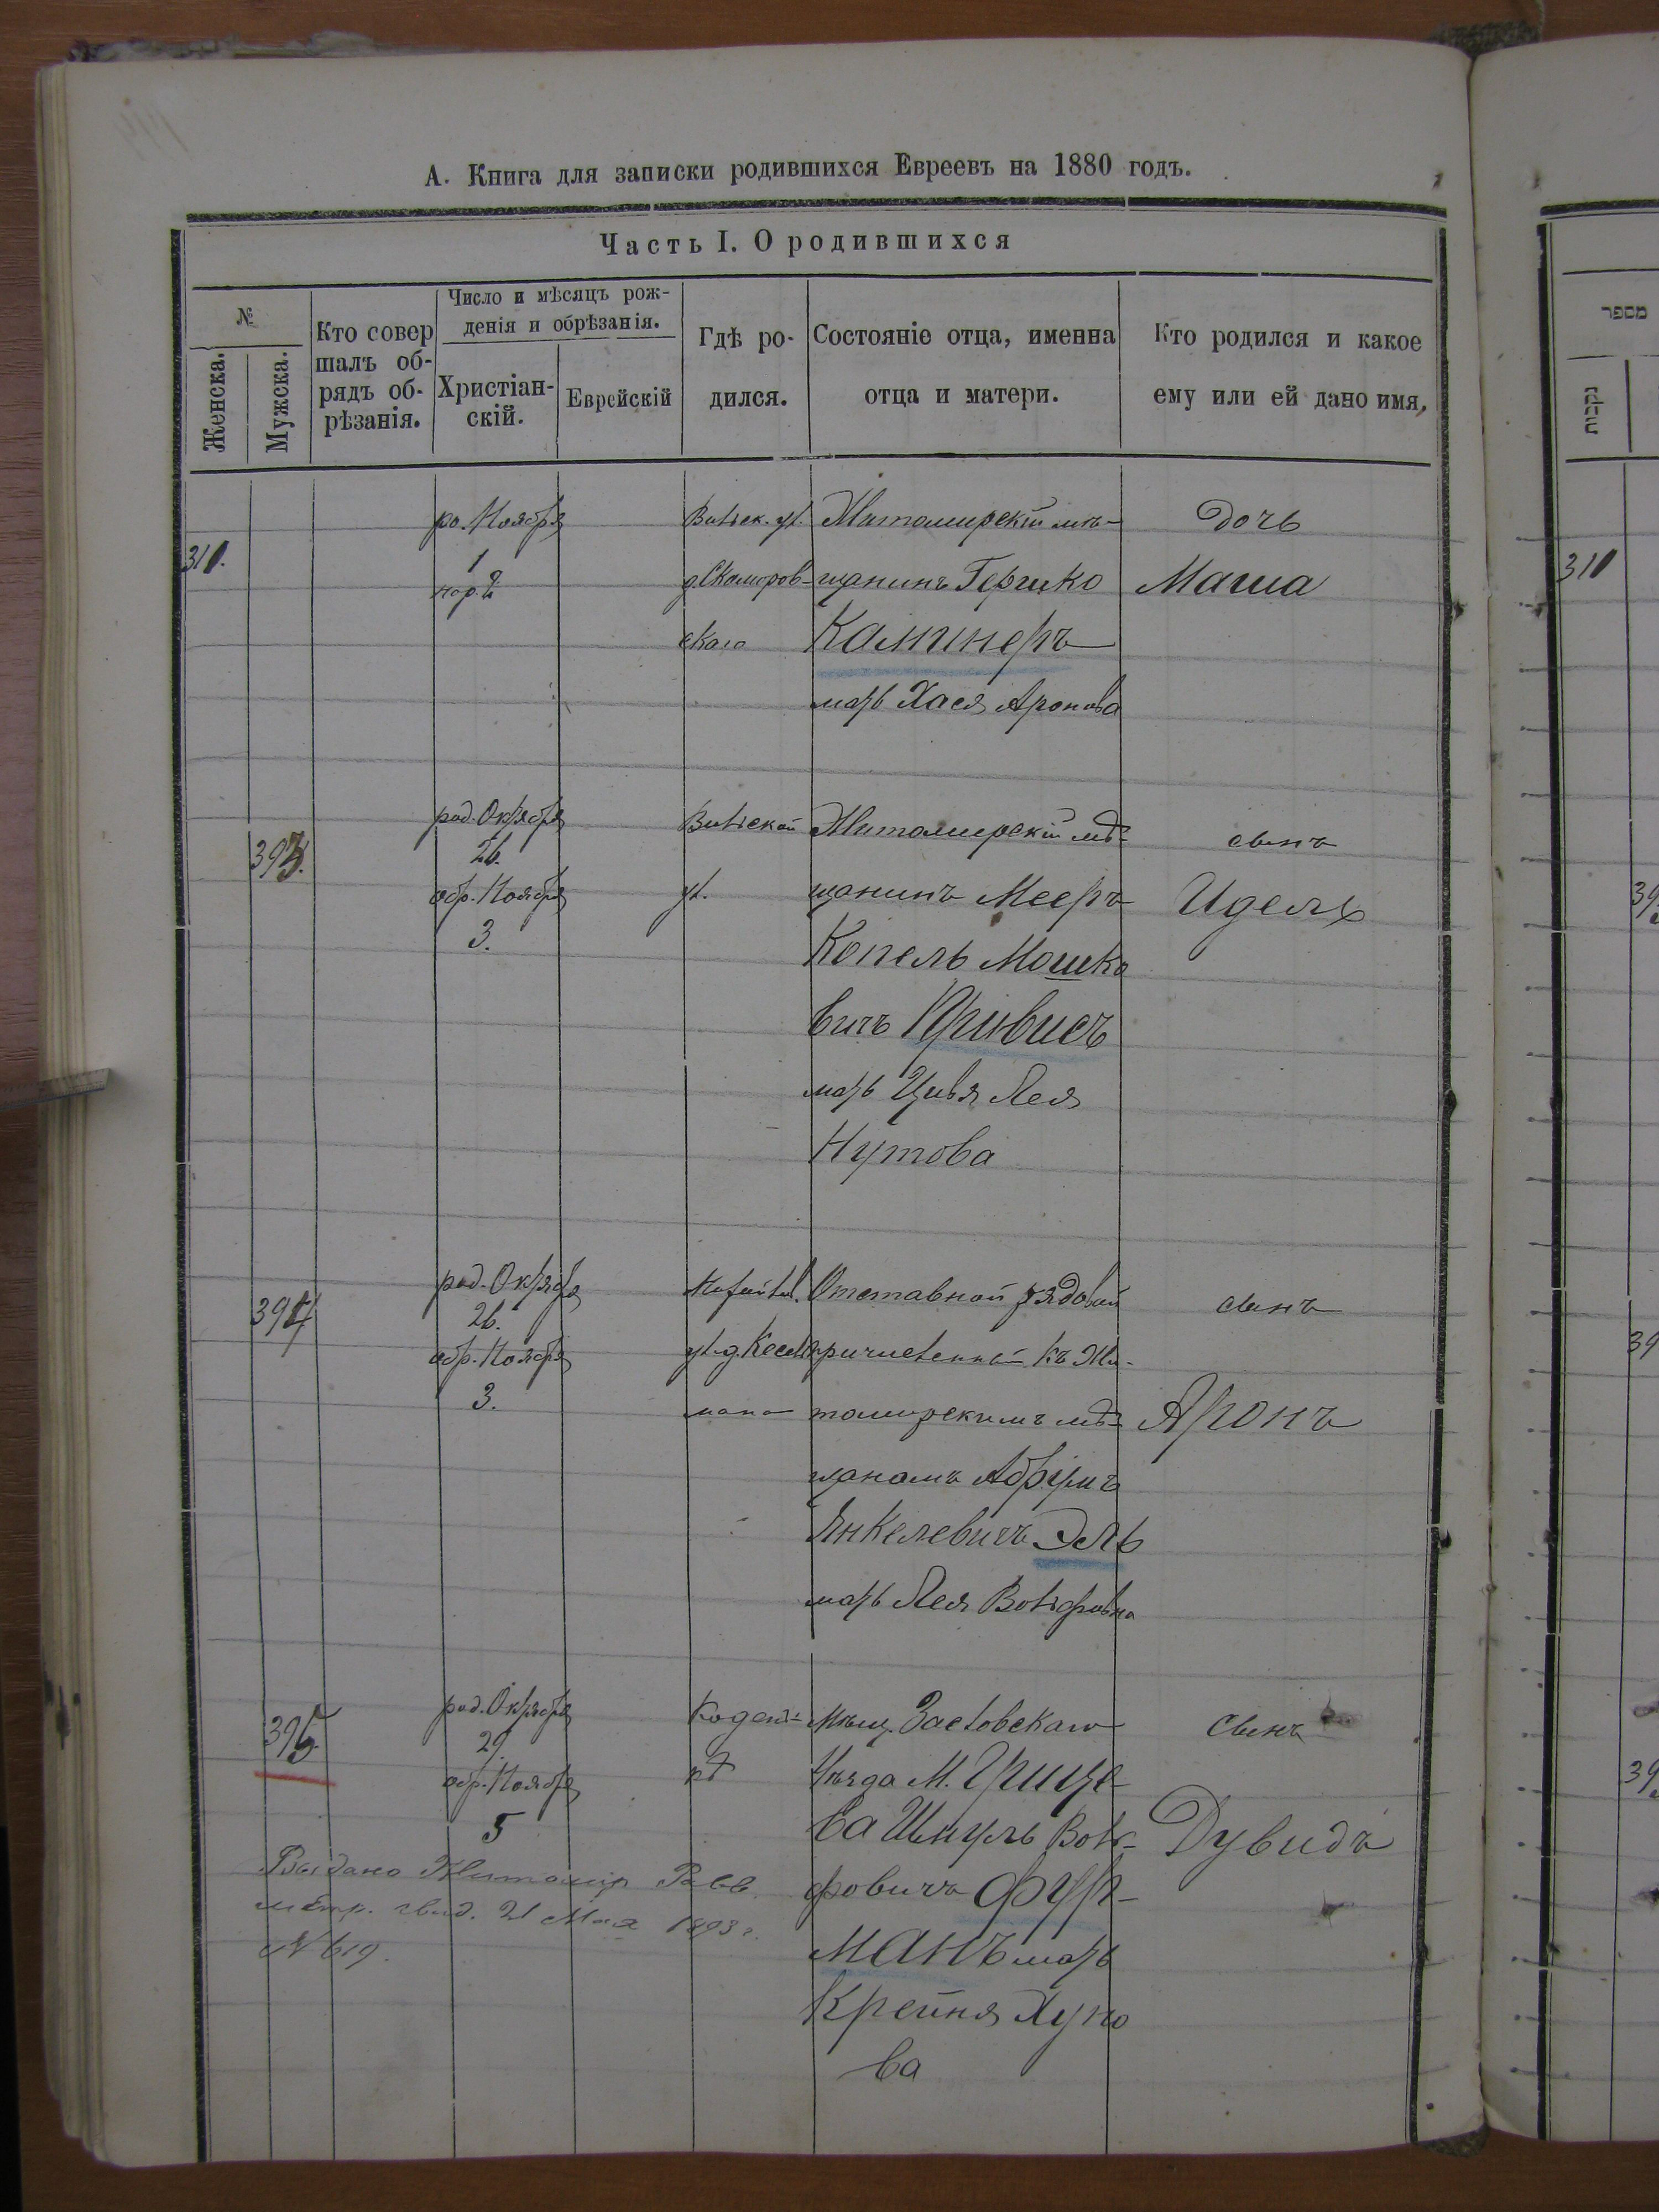 А. Книга для записки родившихся Евреевъ на 1880 годъ.
Часть I. О родившихся
№
Женска.
Мужска.
Кто совер
шалъ об-
рядъ об-
рѣзанія.
Число и мѣсяцъ рож-
денія и обрѣзанія.
Христіан-
скій.
Еврейскій
Гдѣ ро-
дился.
Состояніе отца, именна
отца и матери.
Кто родился и какое
ему или ей дано имя,
310.
Ноября
1
нар. 2
скаго
Житомирскій мѣ-
щанинъ Гершко
Каминеръ
мать Хася Аронова
дочь
Маша
393.
род. Октября
26.
обр. Ноября
3.
ул.
Житомирскій мѣ-
щанинъ Мееръ
Копель Мошко
вичъ Кривисъ
мать Цивья Лея
Нутова
сынъ
Идель
394
род. Октября
26.
обр. Ноября
3.
Отставной рядовой
причисленный къ Жи-
томирскимъ мѣ-
щанамъ Абрумъ
Янкелевичъ Эль
мать Лея Вольфовна
сынъ
Аронъ
395.
род. Октября
29.
обр. Ноября
5
Мѣщ. Заславскаго
Уѣзда М. Грице-
ва Шмуль Воль-
фовичъ Фур-
манъ мать
Крейня Хуно
ва
сынъ
Дувидъ
Выдано Житомір Равв.
метр. свид. 21 Мая 1893 г.
№ 619.
מספר
נקבות
310
39
39
39